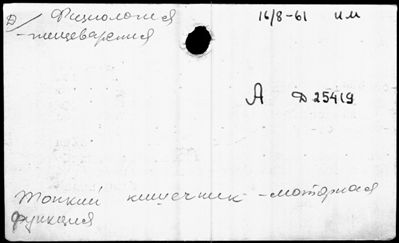 D/ Физиология 16/8-61 им
-пищеварения
А D 25419
Тонкий кишечник - моторная
функция